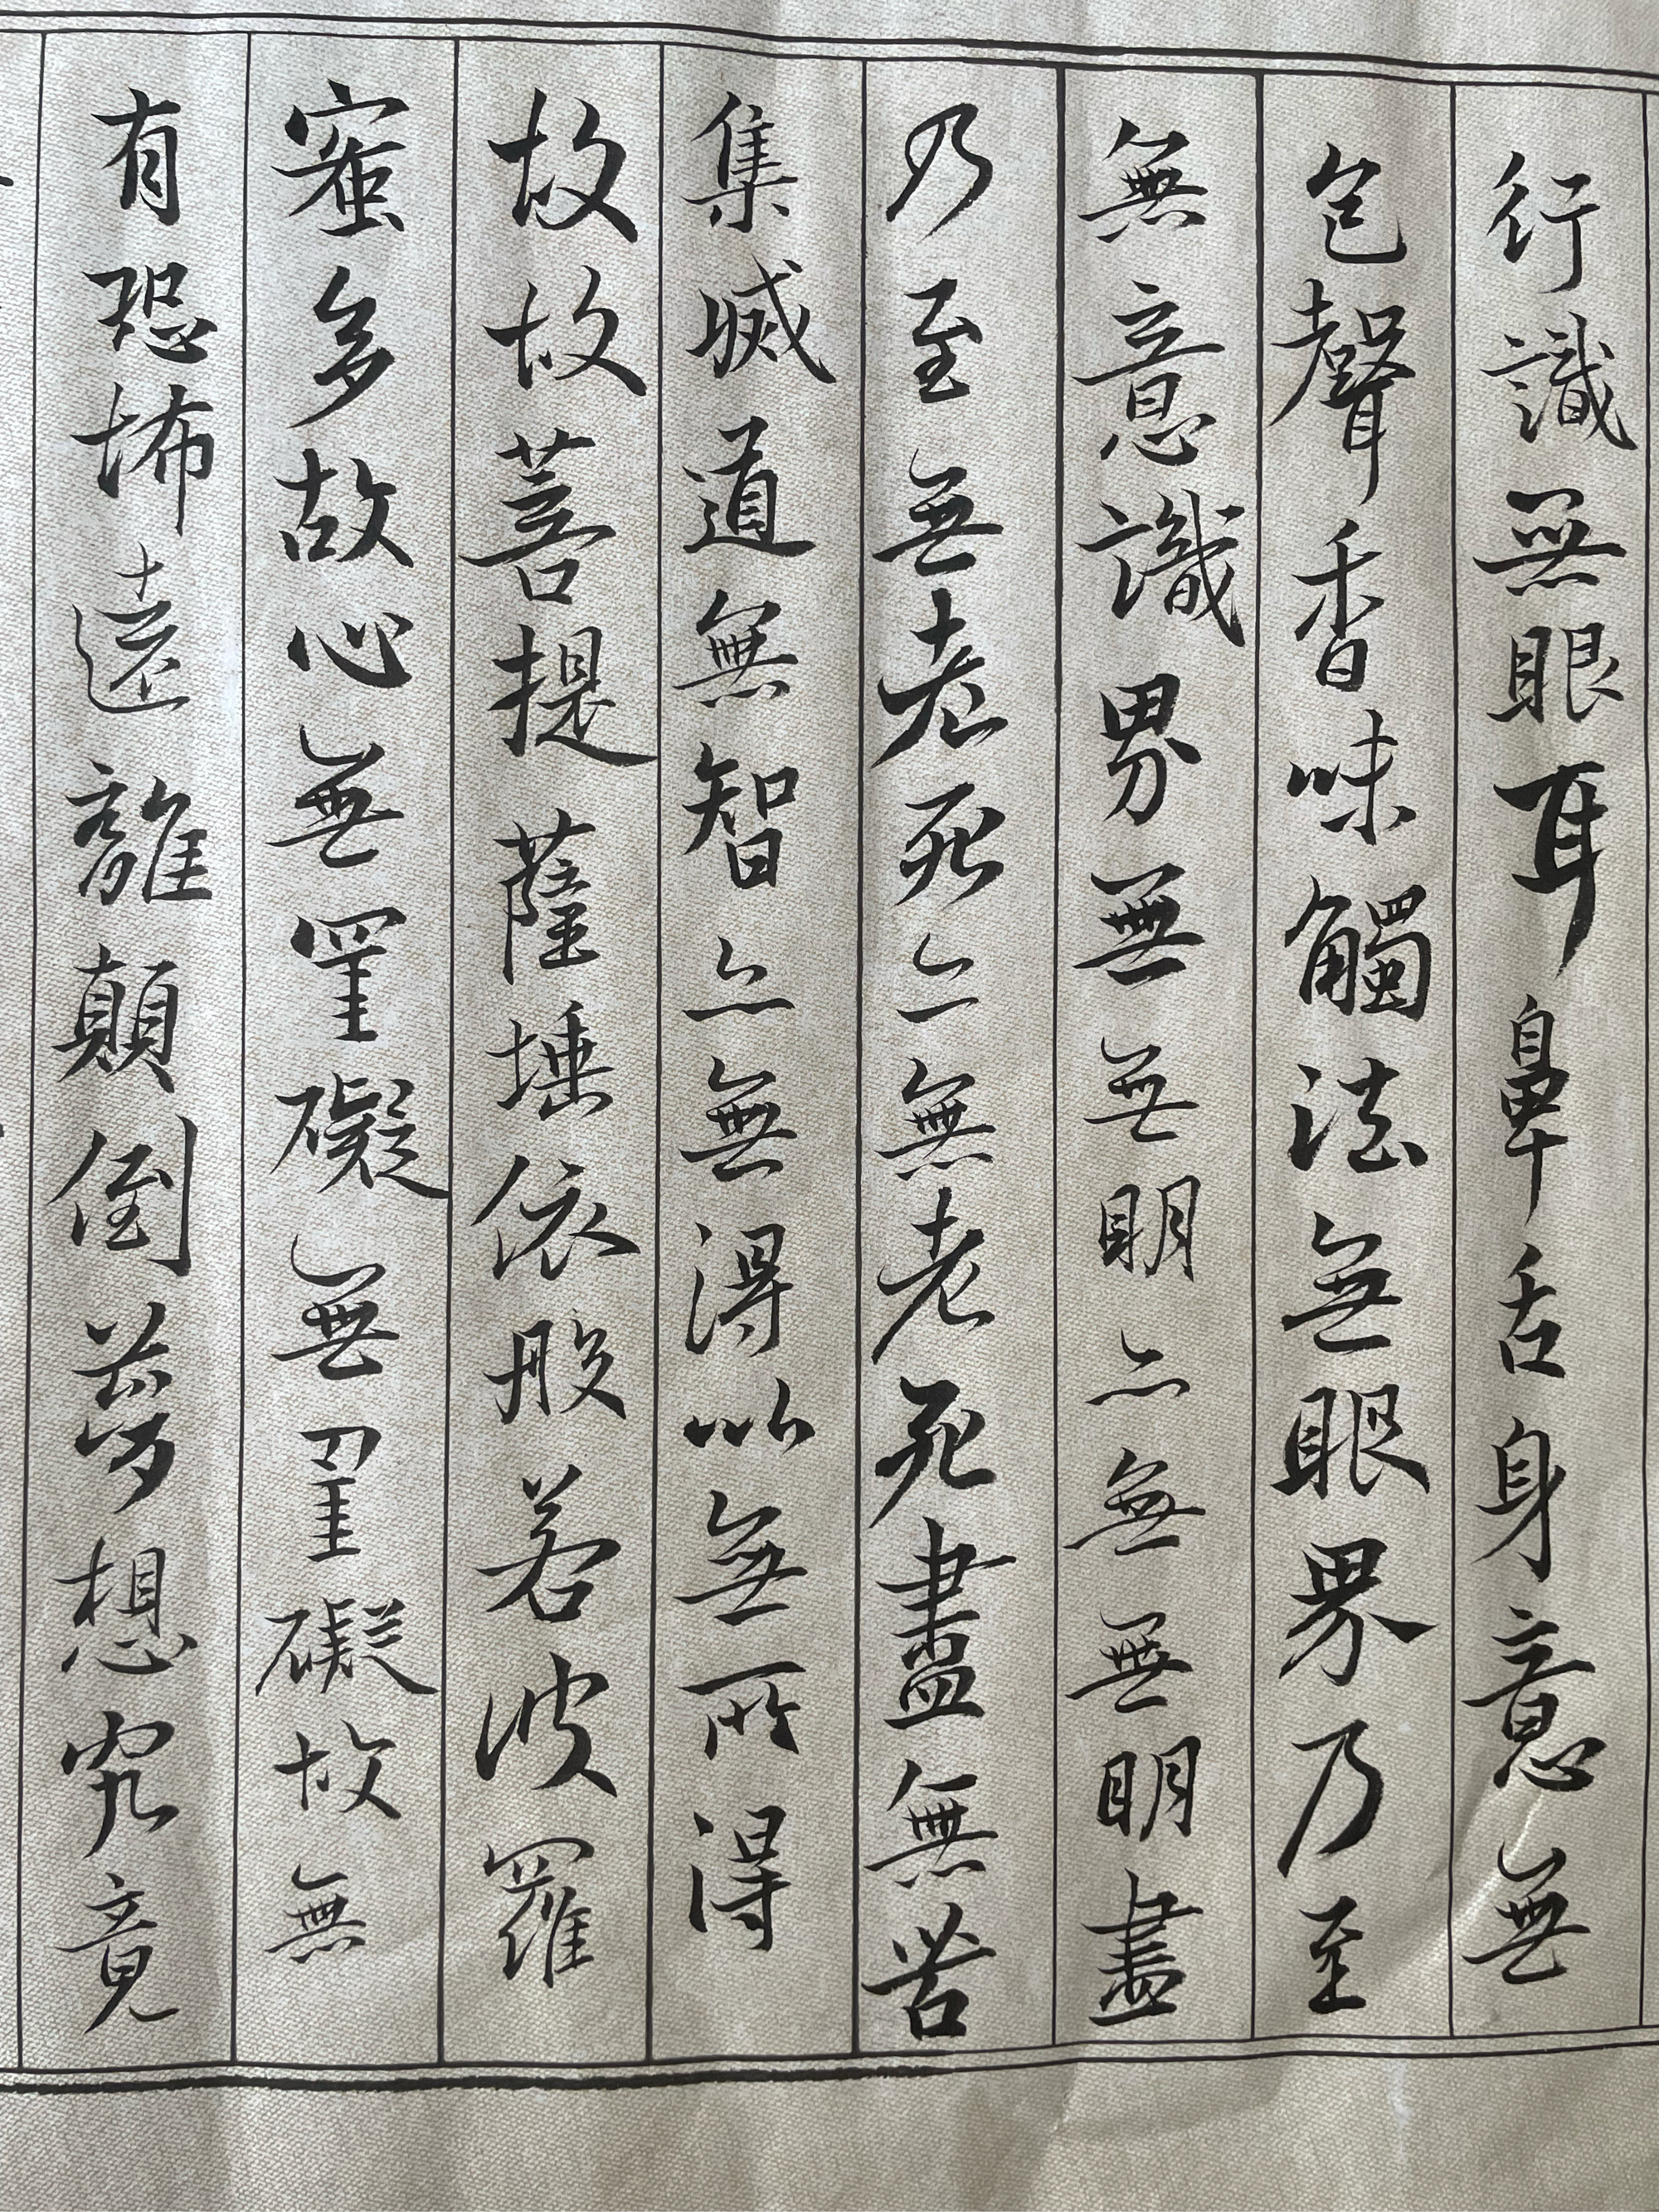 行識無眼耳鼻舌身意無
色聲香味觸法無眼界乃至
無意識界無無明亦無無明盡
乃至無老死亦無老死盡無苦
集滅道無智亦無得以無所得
故故菩提薩埵依般若波羅
蜜多故心無罣礙無罣礙故無
有恐怖遠離顛倒夢想究竟